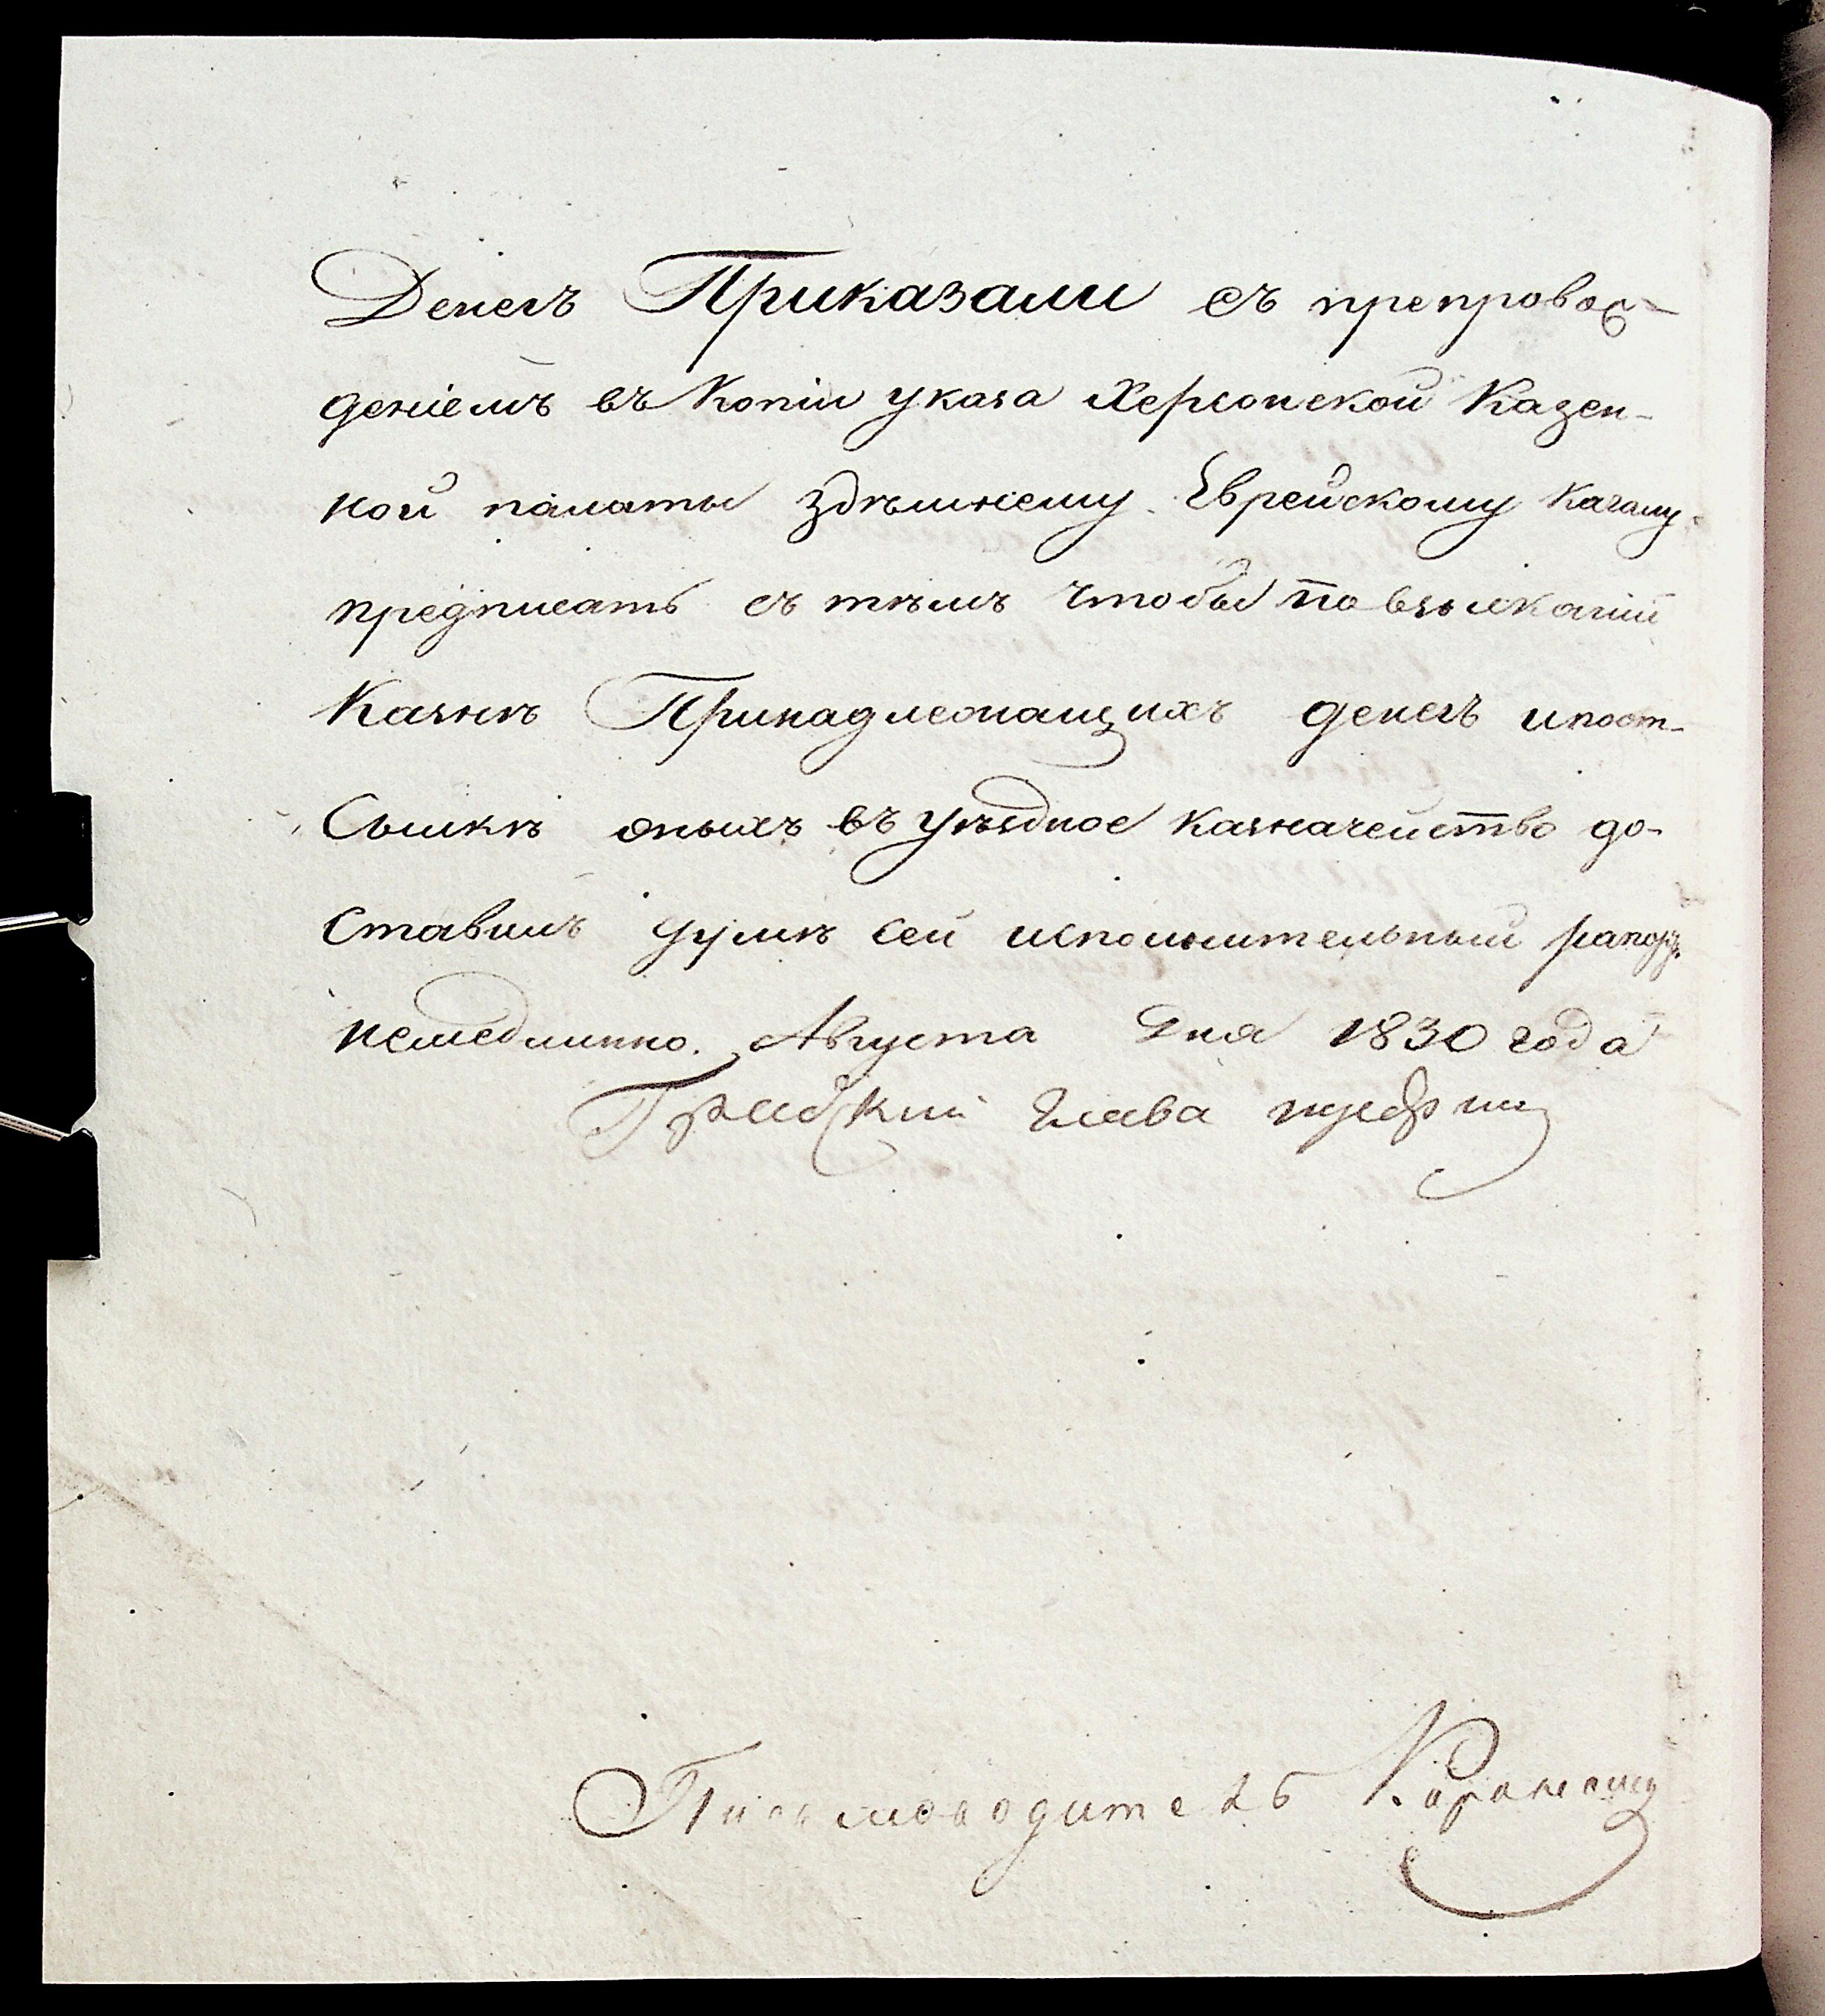 Денегъ Приказали съ препровож-
деніемъ въ копіи указа Херсонской Казен-
ной палаты здѣшнему Еврейскому Кагалу
предписать съ тѣмъ чтобы по взысканіи
Казнѣ Принадлежащихъ денегъ и по от-
Сылкѣ оныхъ въ уѣздное казначейство до-
ставилъ думѣ сей исполнительный рапортъ
немедлинно. Августа дня 1830 года
Градскій Глава
Писмоводитель